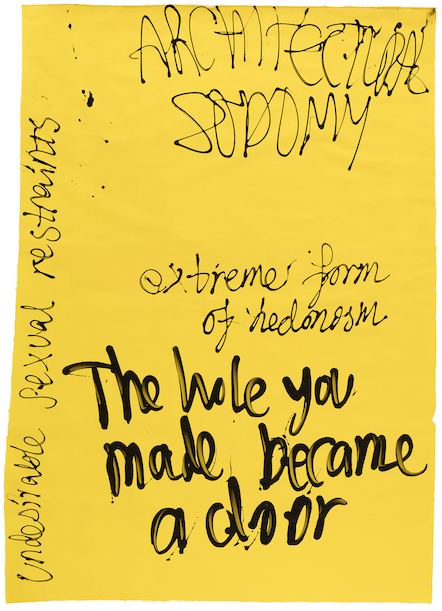 ARCHITECTURAL
SODOMY
undesirable sexual restraints
extreme form
of hedonism
The hole you
made became
a door